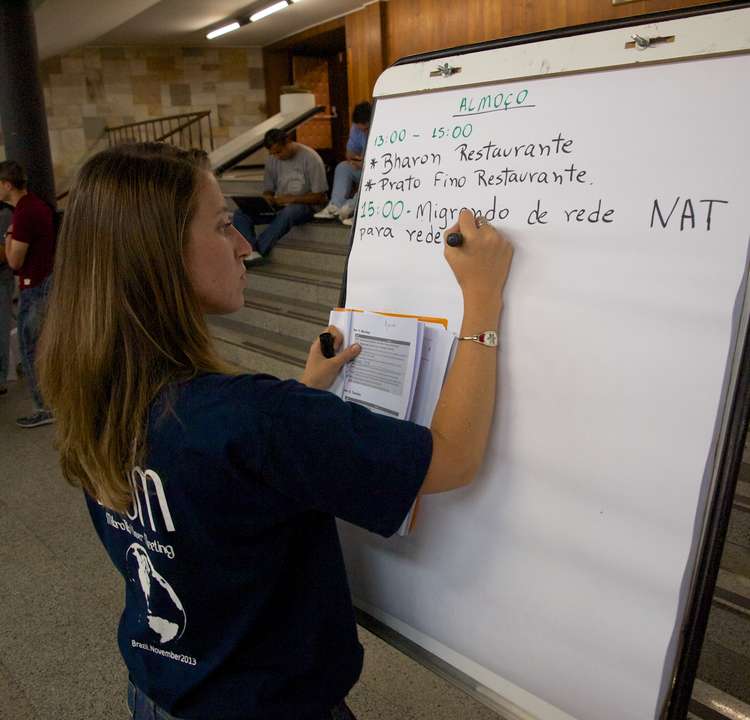 ALMOÇO
13:00 - 15:00
* Bharon Restaurante
* Prato Fino Restaurante.
15:00 - Migrando de rede NAT
para rede
Brazil, November 2013